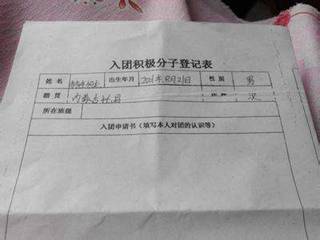 入团积极分子登记表
姓名 出生年月 性别 男
籍贯 内蒙古 民族 汉
所在班级
入团申请书（填写本人对团的认识等）